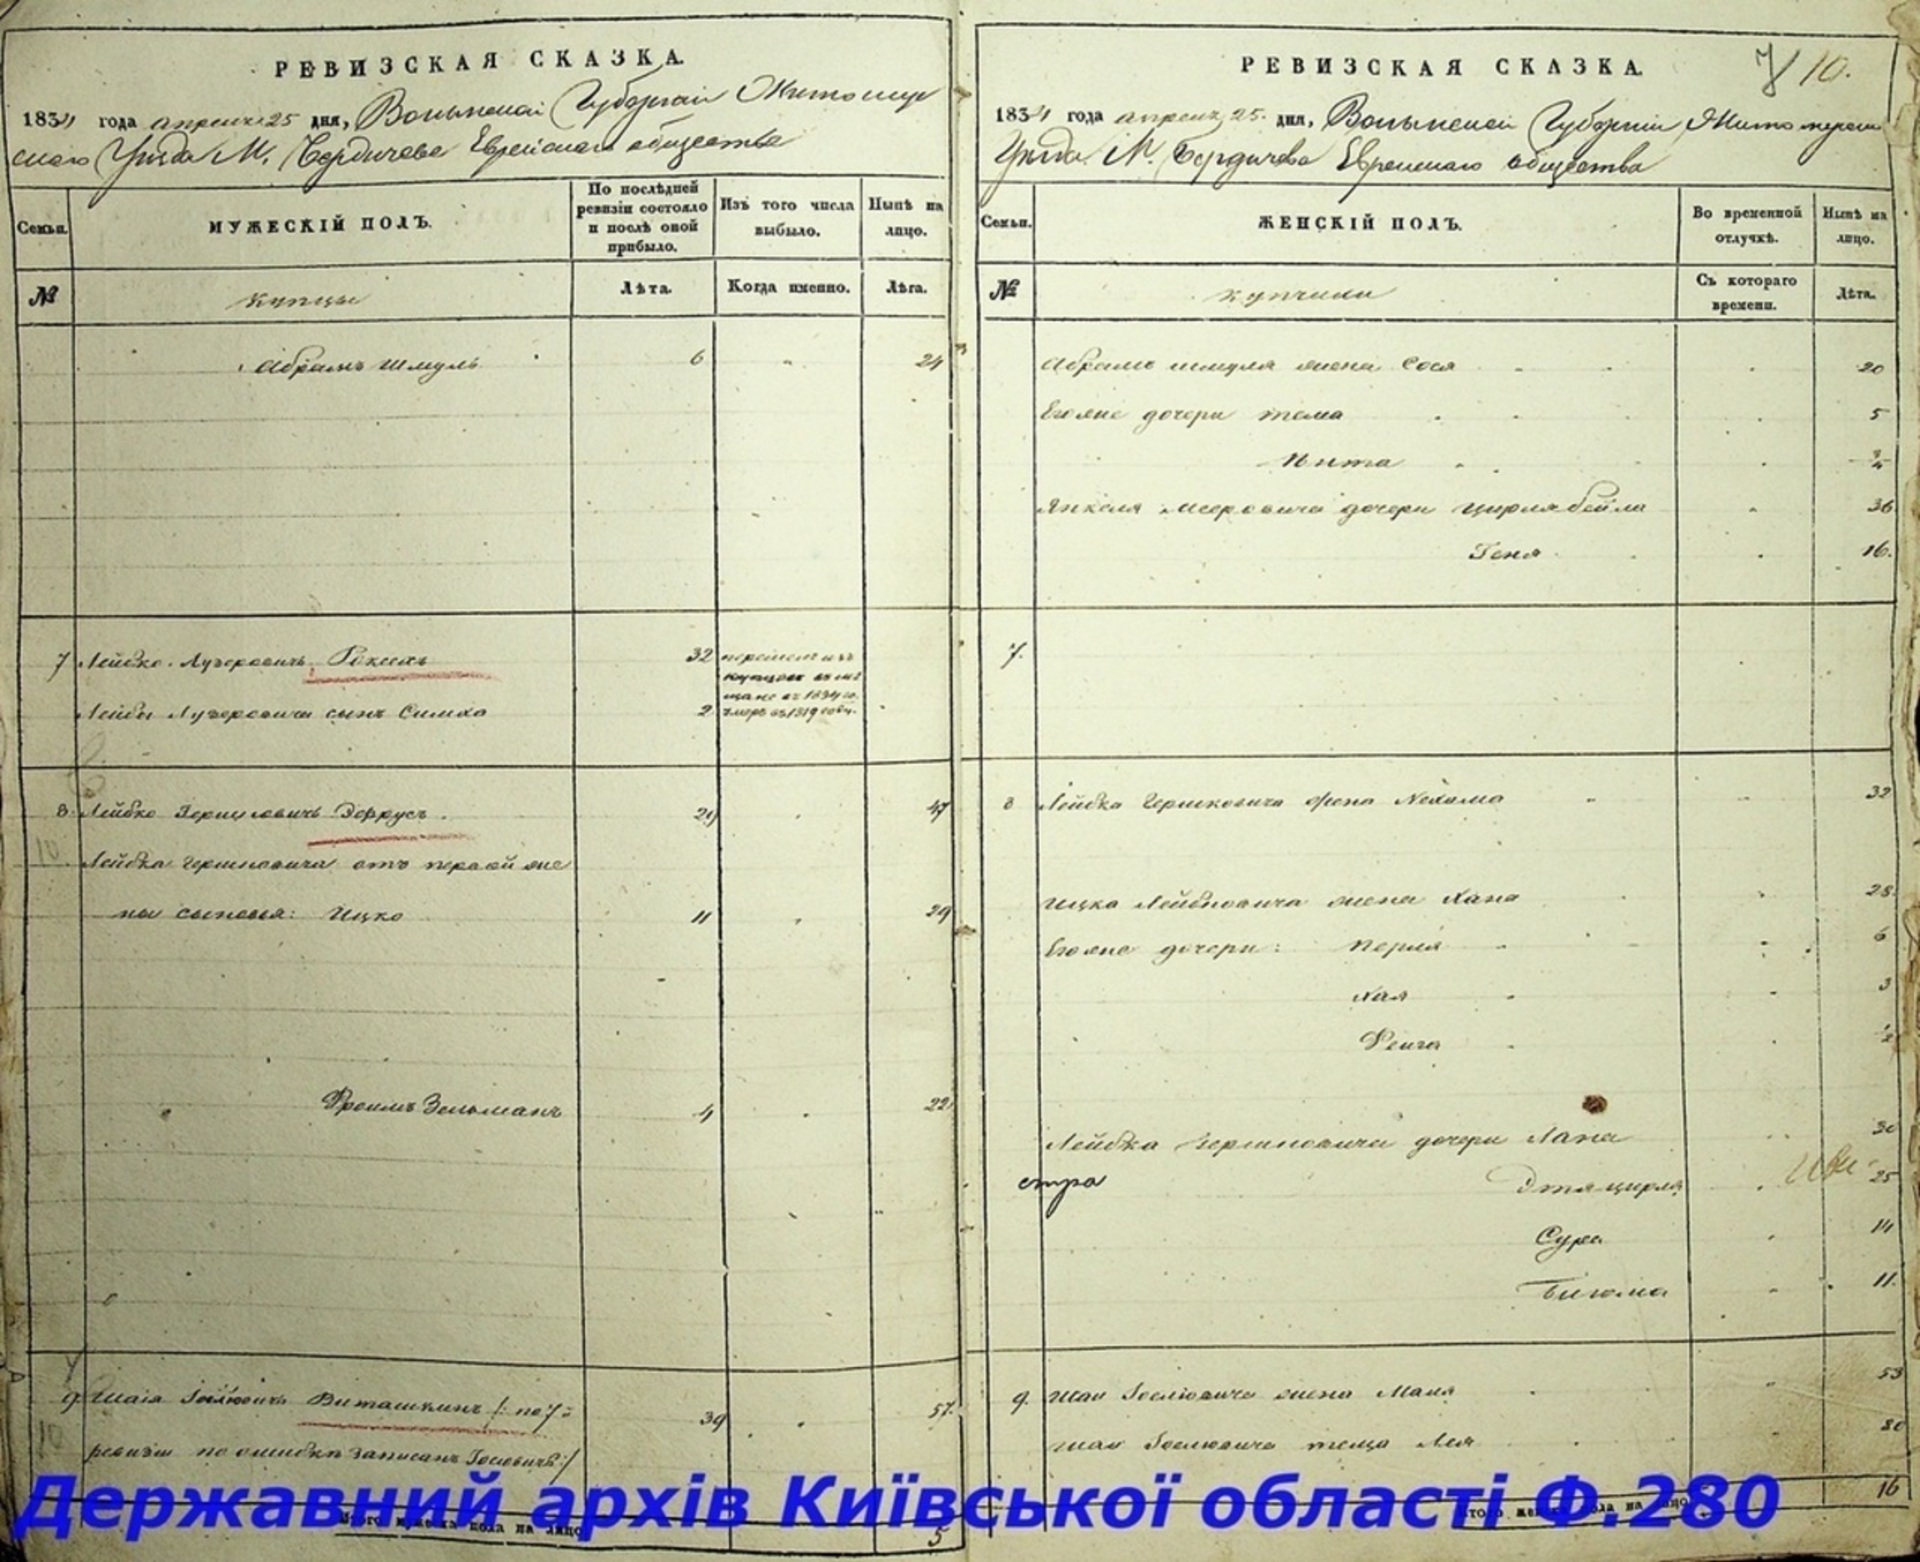 РЕВИЗСКАЯ СКАЗКА.
1834 года апреля 25 дня, Волынской Губернии Житомир
скаго Уезда М. Бердичева Еврейскаго общества
Семьи.
МУЖЕСКІЙ ПОЛЪ.
По послѣдней ревизіи состояло и послѣ оной прибыло.
Изъ того числа выбыло.
Нынѣ на лицо.
№
купцы
Лѣта.
Когда именно.
Лѣта.
Абрамъ Шмуль 6 24
7 Лейбко Лузеровичъ 32 перешелъ изъ
купцовъ въ ме
щане въ 1834 го.
Лейбы Лузеровича сынъ Симха 2 умеръ въ 1819 году.
8 Лейбко Гершковичъ Эфрусъ 29 47
Лейбка Гершковича отъ первой же
ны сыновья: Ицко 11 29
Фроимъ Зельманъ 4 22
9 Шаія Іосіовичъ Виташкинъ /: по 7й
ревизіи по ошибкѣ записанъ Іосіовичъ :/ 39 57
Итого мужеска пола на лицо 5
РЕВИЗСКАЯ СКАЗКА. 7 10.
1834 года апреля 25 дня, Волынской Губерніи Житомирскаго
Уезда М. Бердичева Еврейскаго общества
Семьи.
ЖЕНСКІЙ ПОЛЪ.
Во временной отлучкѣ.
Нынѣ на лицо.
№
купчихи
Съ котораго времени.
Лѣта.
Абрамъ шмуля жена Сося 20
Егоже дочери тема 5
36
Янкеля Меeровича дочери Цирля бейла
Геня 16.
7.
8 Лейбка Гершковича жена Нехама 32
Ицка Лейбковича жена Хана 28
Егоже дочери: Перля 6
Хая 3
1/2
Лейбка Гершковича дочери Хана 30
Этя цирля 25
Сура 14
11.
9. Шаи Іосіовича жена Маля 53
Шаи Іосіовича теща Лея 80
Итого женска пола на лицо 16
Державний архів Київської області Ф.280